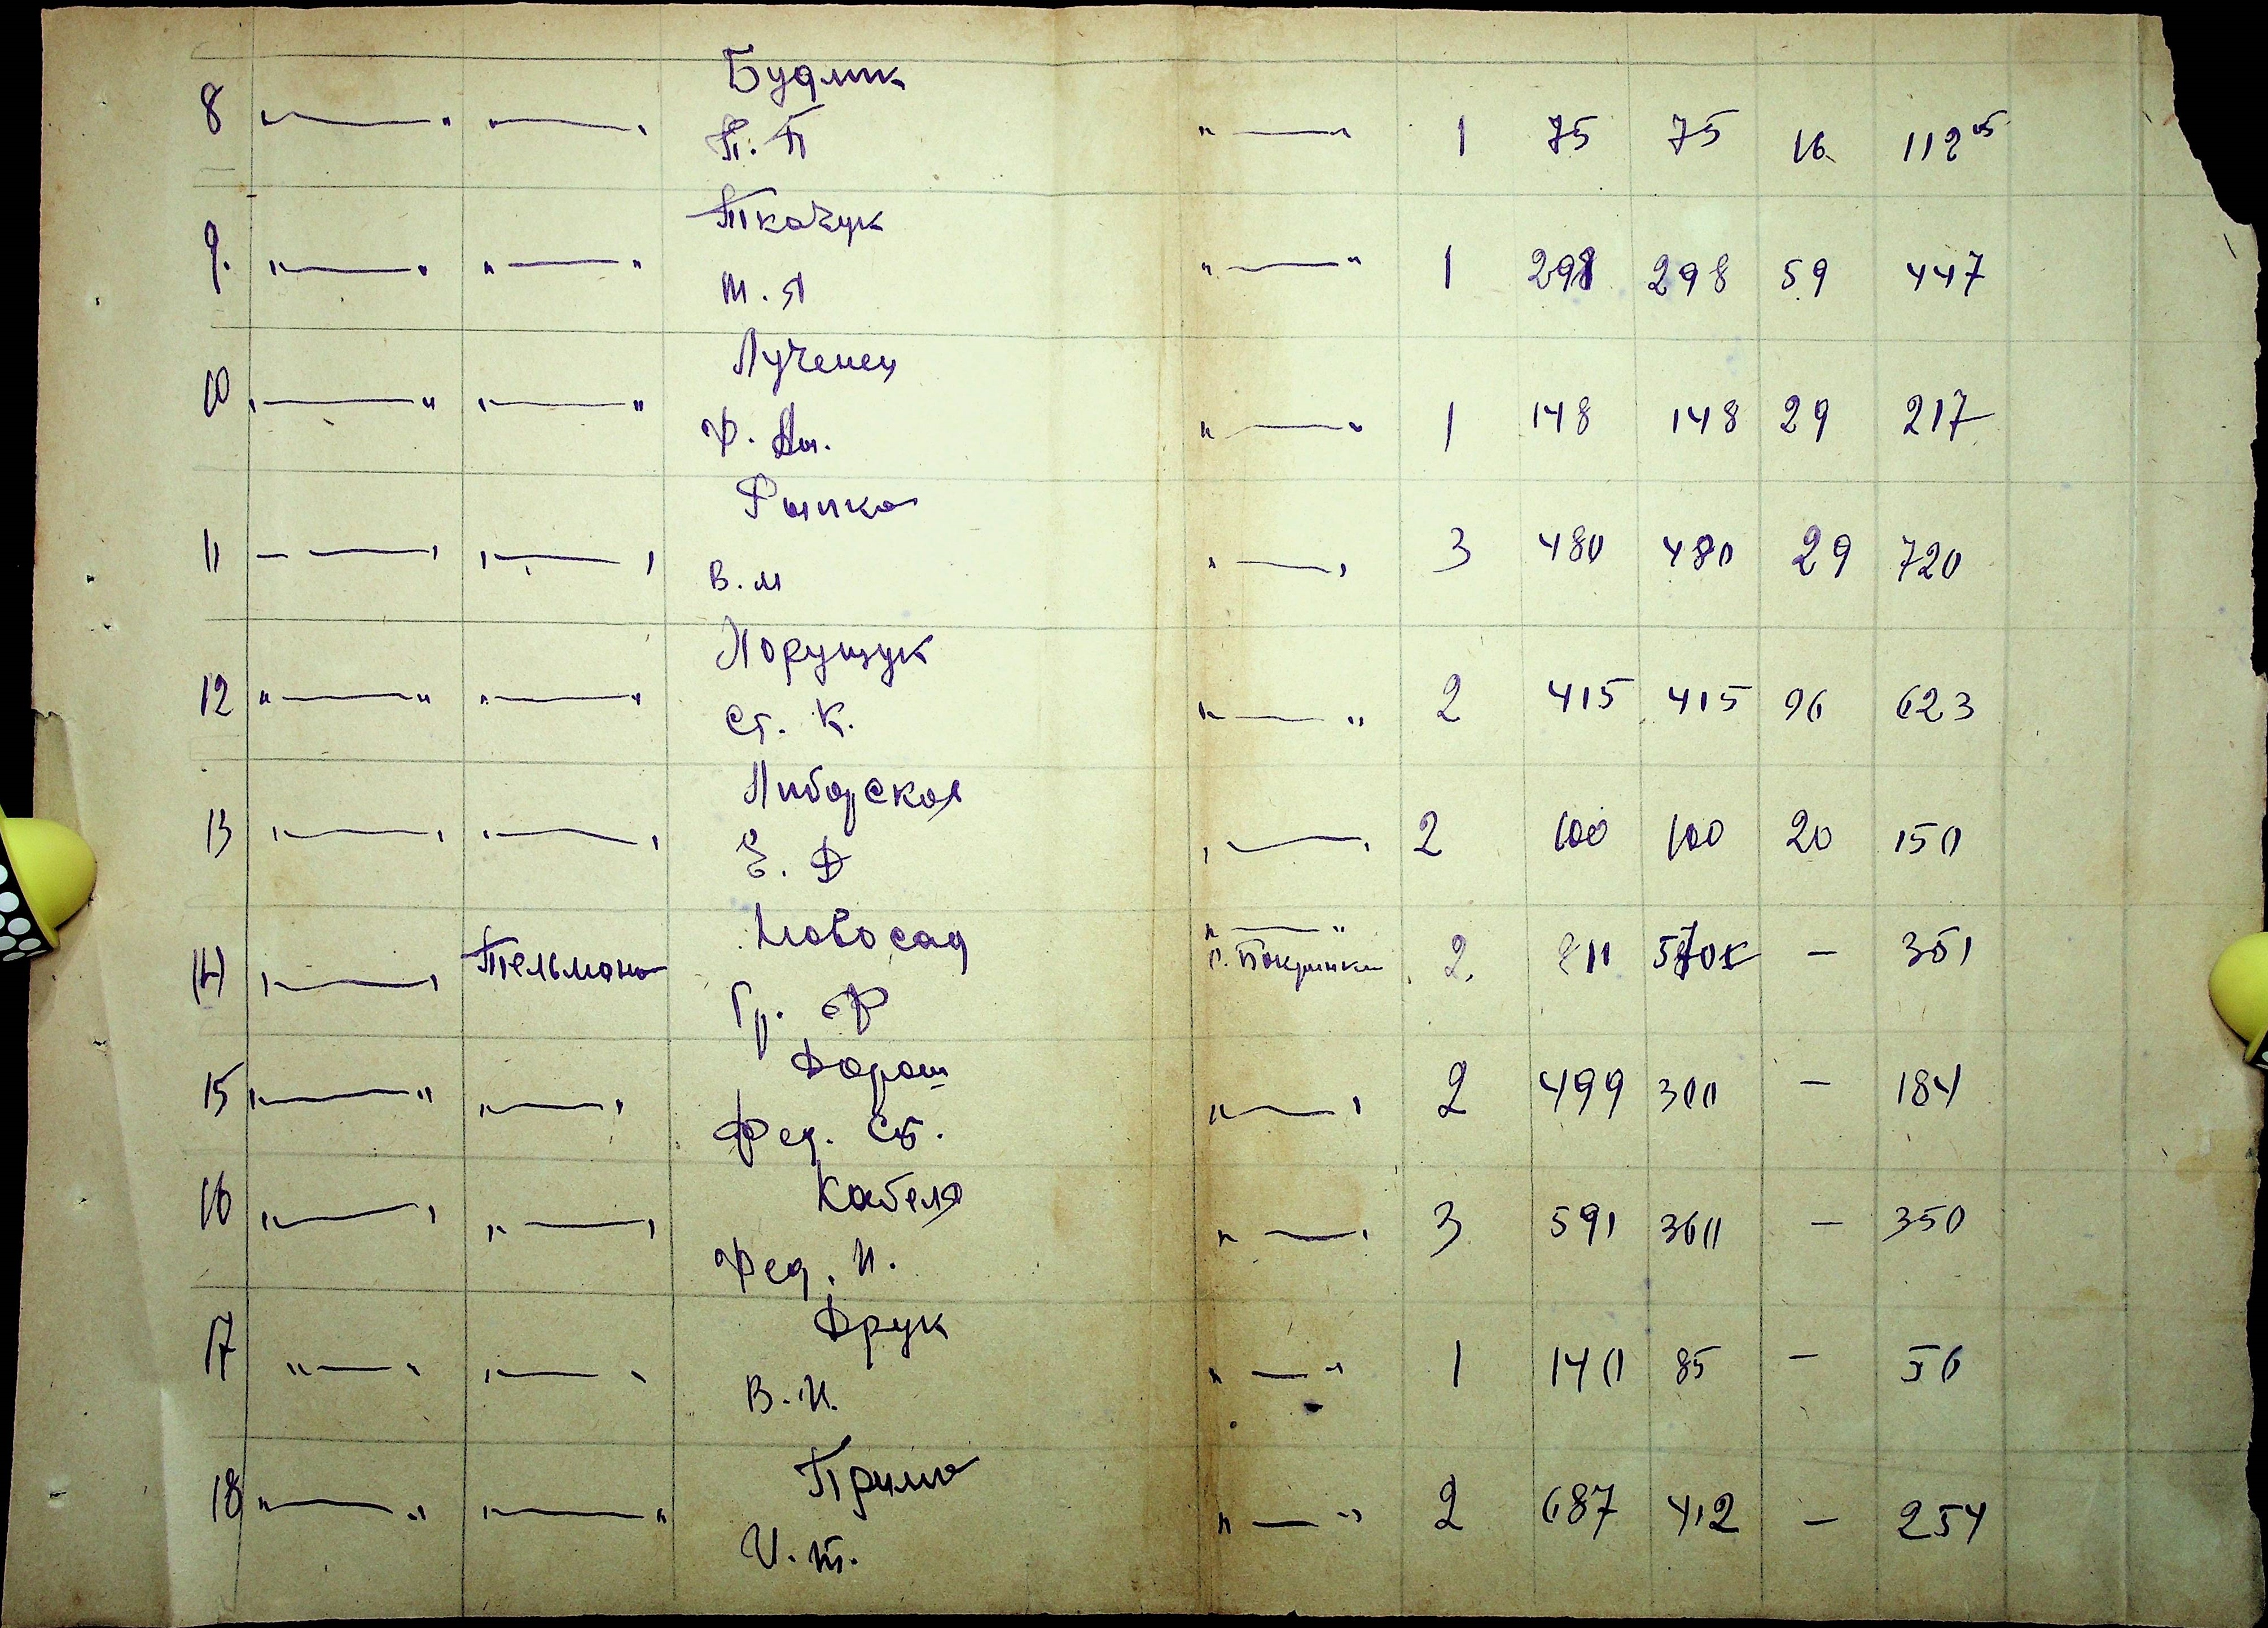 Будлик
8 "—" "—" П. П "—" 1 75 75 16 112 05
Ткачук
9. "—" "—" М. Я "—" 1 298 298 59 447
Лученец
10 "—" "—" Ф. Ам. "—" 1 148 148 29 217
Рыпка
11 "—" "—" В. М "—" 3 480 480 29 720
Порущук
12 "—" "—" Ст. К. "—" 2 415 415 96 623
Либорская
13 "—" "—" Е. Д "—" 2 100 100 20 150
Новосад "—"
14 "—" Тельмана Гр. Ф 2 811 — 351
Дорош
15 "—" "—" Фед. Ст. "—" 2 499 300 — 184
Кабеля
16 "—" "—" Фед. И. "—" 3 591 360 — 350
Друк
17 "—" "—" В. И. "—" 1 140 85 — 56
Прима
18 "—" "—" И. Т. "—" 2 687 412 — 254